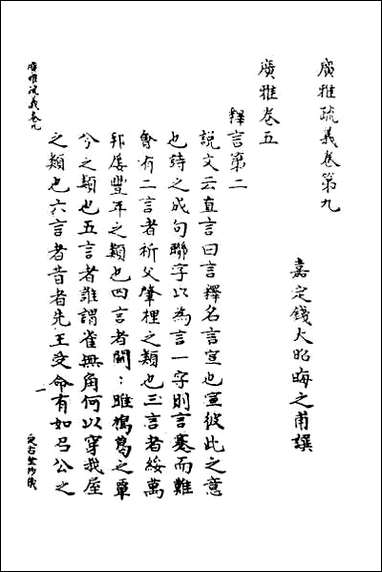 廣雅疏義卷第九
嘉定錢大昭晦之甫譔
廣雅卷五
釋言第二
説文云直言曰言釋名言宣也宣彼此之意
也詩之成句聯字以為言一字則言蹇而難
會有二言者祈父肇禋之類也三言者綏萬
邦屢豐年之類也四言者關:雎鳩葛之覃
兮之類也五言者誰謂雀無角何以穿我屋
之類也六言者昔者先王受命有如召公之
廣雅疏義卷九
一